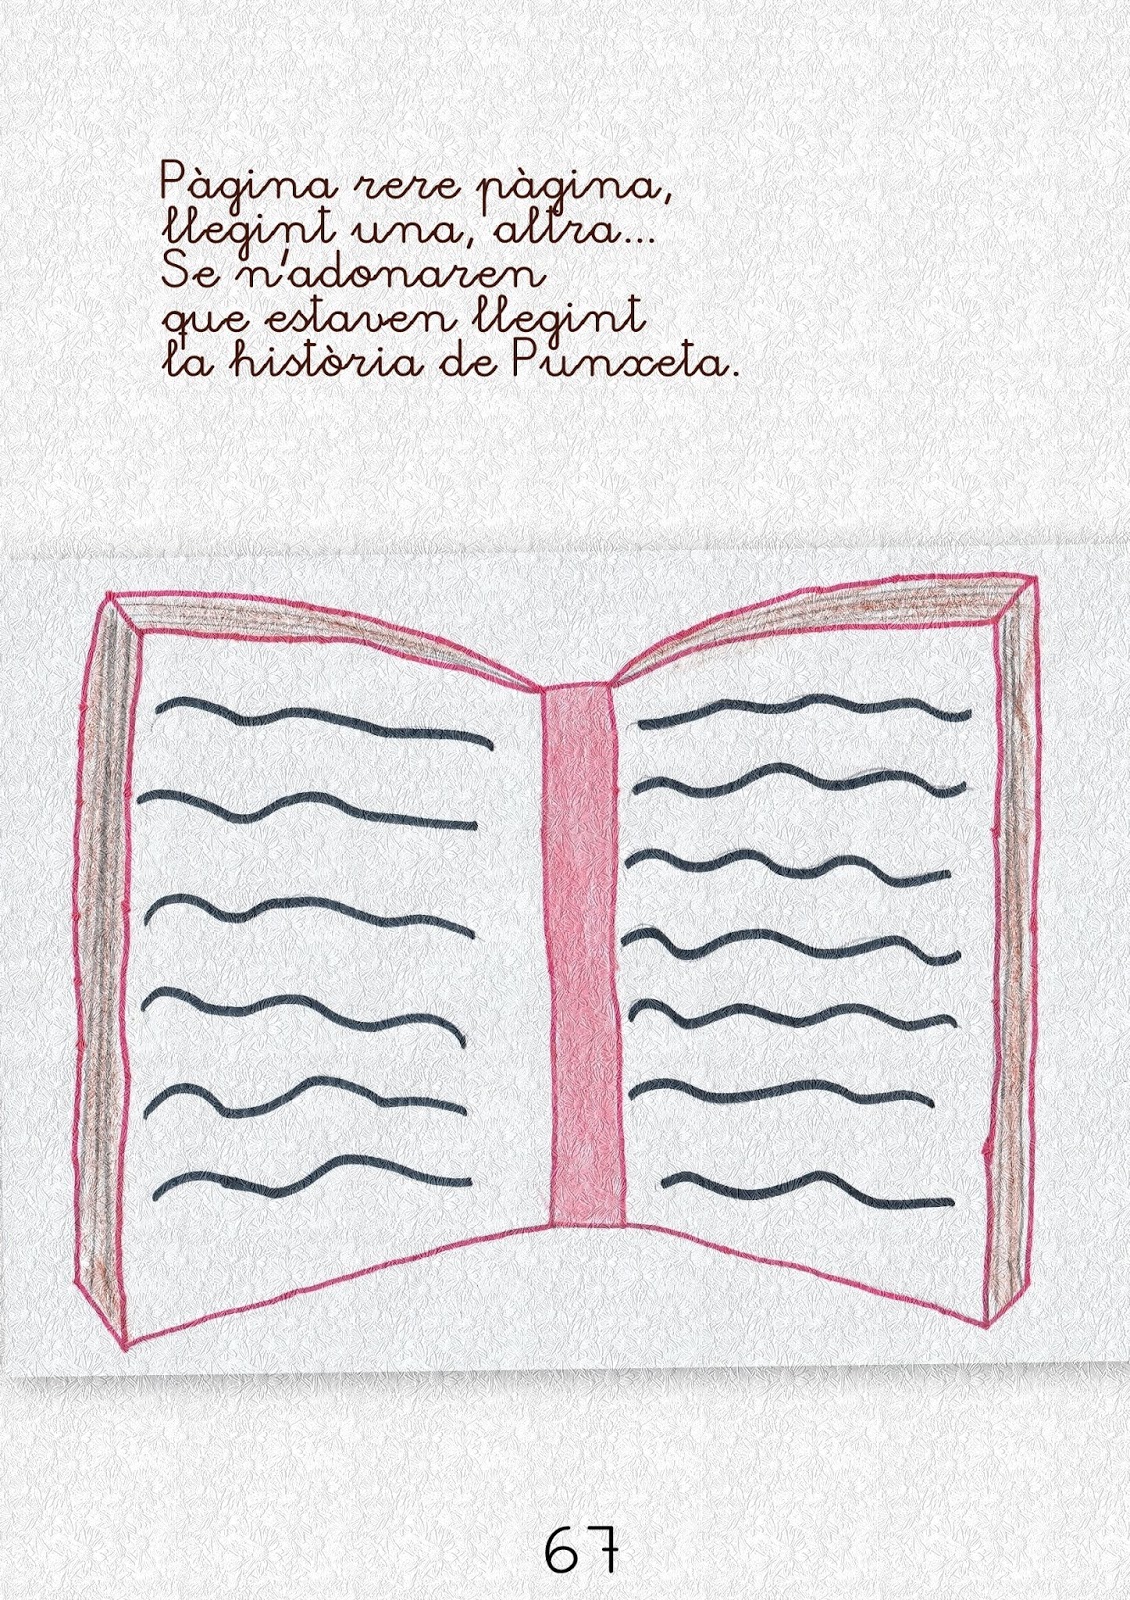 Pàgina rere pàgina,
llegint una, altra...
Se n'adonaren
que estaven llegint
la història de Punxeta.
67